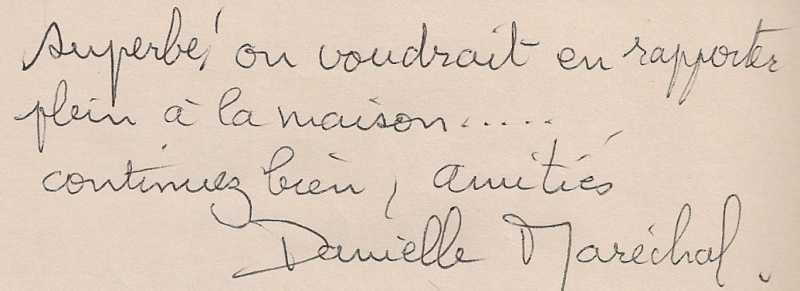 superbe! on voudrait en rapporter
plein à la maison.....
continuez bien, amitiés
Danielle Maréchal.